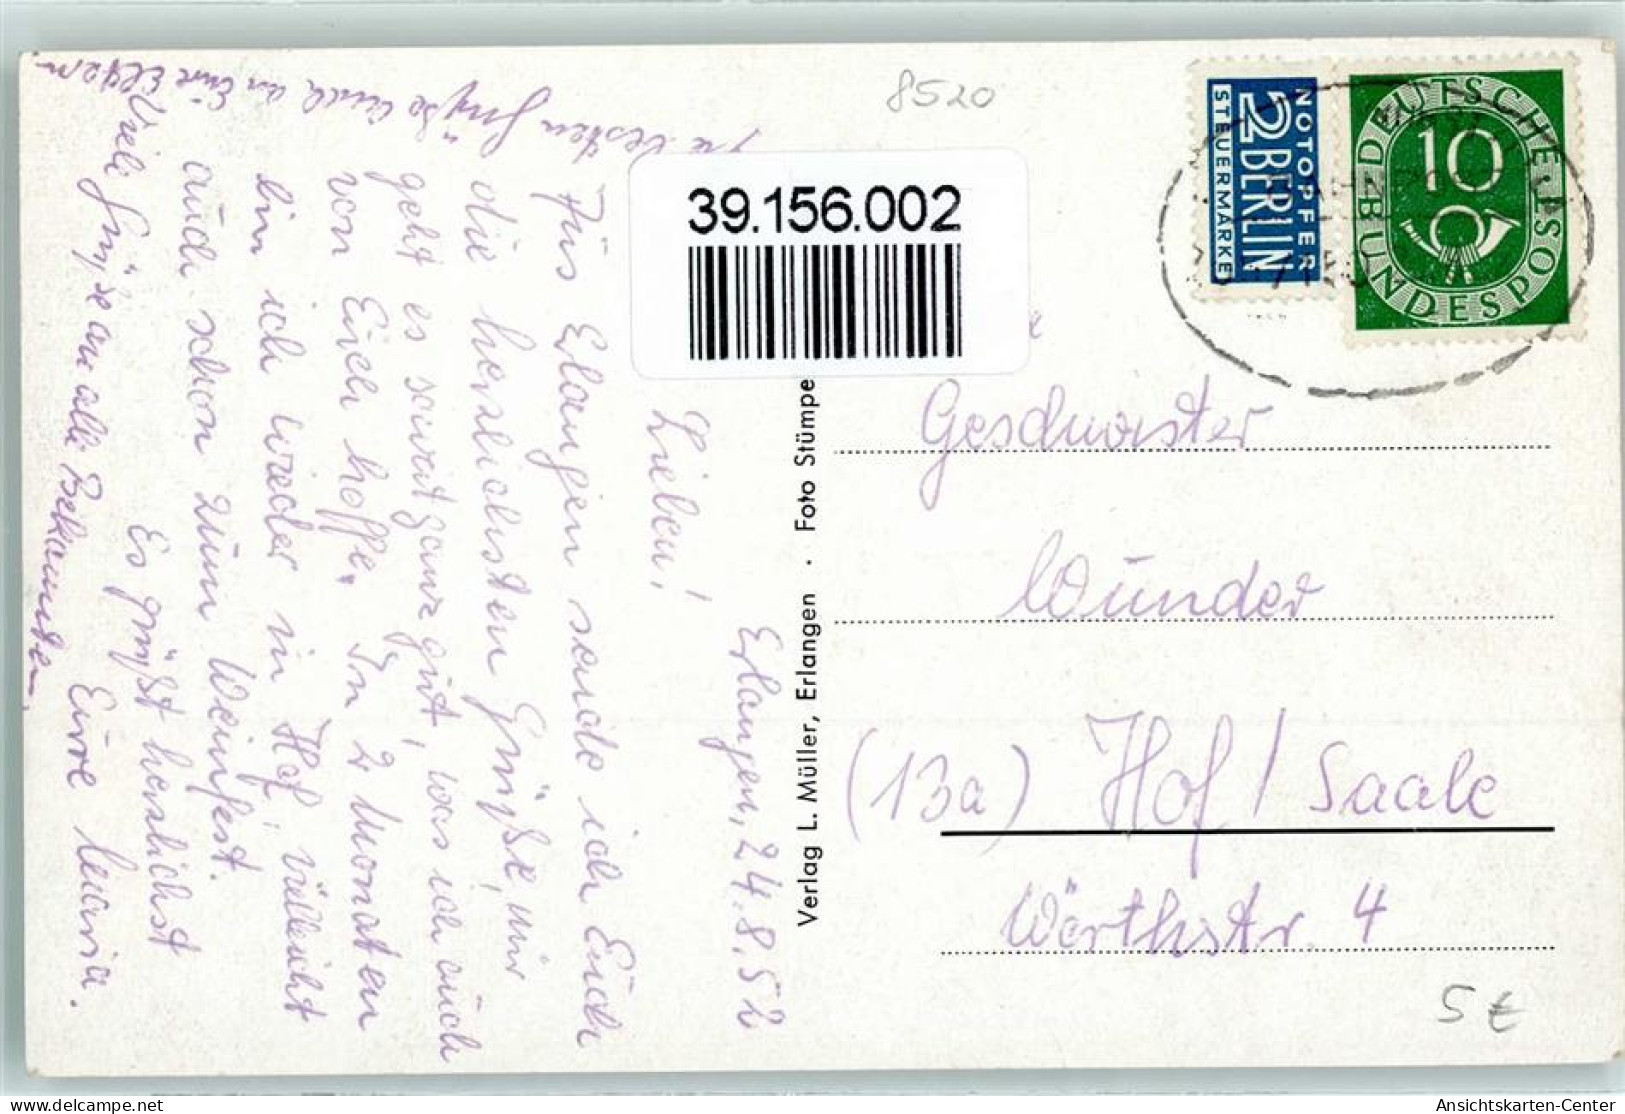 8520
39.156.002
NOTOPFER
2 BERLIN
STEUERMARKE
DEUTSCHE BUNDESPOST
10
Erlangen, 24.8.52
Lieben!
Aus Erlangen sende ich Euch
die herzlichsten Grüße, mir
geht es soweit ganz gut, was ich auch
von Euch hoffe. In 2 Monaten
bin ich wieder in Hof, vielleicht
auch schon zum Weinfest.
Es grüßt herzlichst
Eure Maria.
Viele Grüße an alle Bekannten.
die besten Grüße auch an Eure Eltern
Verlag L. Müller, Erlangen · Foto Stümpe
Geschwister
Wunder
(13a) Hof / Saale
Wörthstr. 4
5 €
delcampe.net
Ansichtskarten-Center